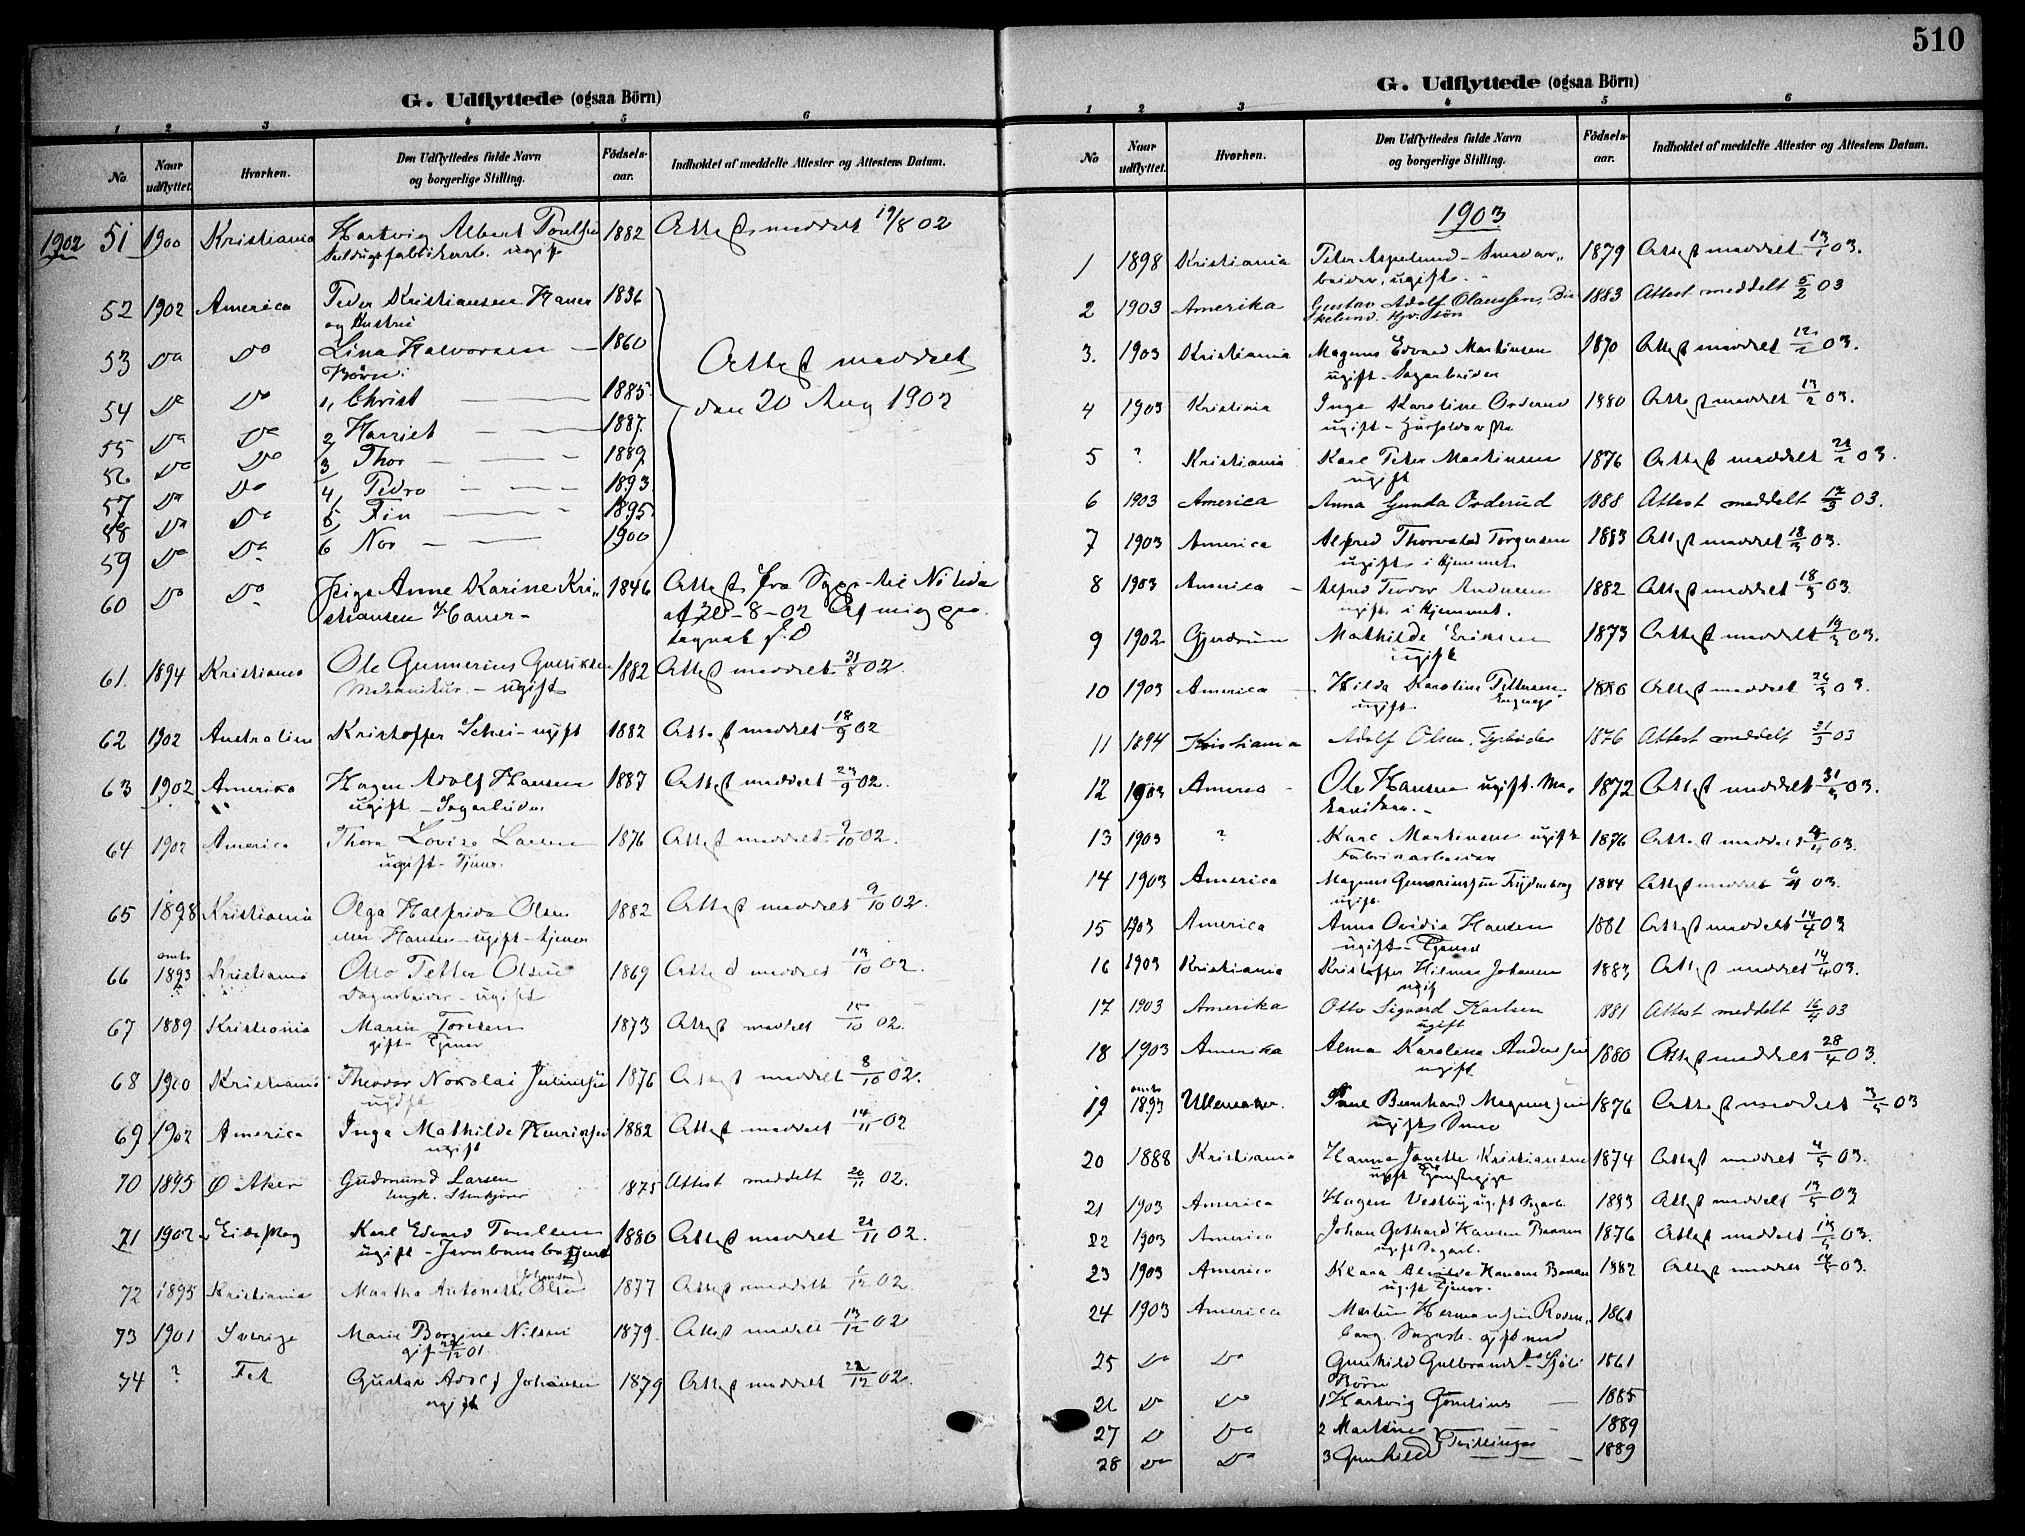 510
G. Udflyttede (ogsaa Börn)
1 2 3 4 5 6
No Naar udflyttet. Hvorhen. Den Udflyttedes fulde Navn og borgerlige Stilling. Födsels-aar. Indholdet af meddelte Attester og Attestens Datum.
1902 51 1900 Kristiania Hartvig Albert 1882 Attest meddelt 19/8 02
ugift
52 1902 America Peder Kristiansen Hauer 1836
og Hustru
53 Do Do Lina Halvorsen — 1860 Attest meddelt
Börn:
54 Do Do 1, Christ — 1885 den 20 Aug 1902
55 Do Do 2, Harriet — 1887
56 Do Do 3, Thor — 1889
57 Do Do 4, Pedro — 1893
58 Do Do 5, Fin — 1895
59 Do Do 6 Nor — 1900
60 Do Do Pige Anne Karine Kri- 1846 Attest fra
stiansen Hauer - 8-02
61. 1894 Kristiania Ole Gunnerius 1882 Attest meddelt 31/8 02
Mekaniker. - ugift
62 1902 Australien Kristoffer Schei - ugift 1882 Attest meddelt 18/9 02
63 1902 Amerika Hagen Adolf Hansen 1887 Attest meddelt 23/9 02.
ugift - Sagarbeider
64 1902 America Thora Lovise Larsen 1876 Attest meddelt 9/10 02.
ugift - Tjener.
65 1898 Kristiania Olga Halfrida Olsen 1882 Attest meddelt 9/10 02.
eller Hansen - ugift - tjener
66 omtr 1893 Kristiania Otto Petter Olsen 1869 Attest meddelt 13/10 02.
Dagarbeider - ugift
67 1889 Kristiania Maren Toresen 1873 Attest meddelt 15/10 02.
gift - Tjener
68 1900 Kristiania Theodor Nokolai Juliussen 1876 Attest meddelt 8/10 02.
ugift
69 1902 America Inga Mathilde Henriksen 1882 Attest meddelt 14/11 02
ugift
70 1895 Ø Aker Gudmund Larsen 1875 Attest meddelt 20/11 02.
Ungk. Stenkjører
71 1902 Eidskog Karl Edvard 1880 Attest meddelt 21/11 02.
ugift -
72 1895 Kristiania Martha Antonette Olsen (Johansen) 1877 Attest meddelt 1/12 02
73 1901 Sverige Marie Borgine Nilsen 1879. Attest meddelt 13/12 02
gift 01
74 ? Fet Gustav Adolf Johansen 1879 Attest meddelt 22/12 02.
ugift
G. Udflyttede (ogsaa Börn)
1 2 3 4 5 6
No Naar udflyttet. Hvorhen. Den Udflyttedes fulde Navn og borgerlige Stilling. Födsels-aar. Indholdet af meddelte Attester og Attestens Datum.
1903
1 1898 Kristiania Peter Aspelund - Smedar- 1879 Attest meddelt 13/1 03.
beider, ugift.
2 1903 Amerika Gustav Adolf Olaussen, 1883 Attest meddelt 5/2 03
3. 1903 Kristiania Magnus Edvard Martinsen 1870 Attest meddelt 12/2 03.
ugift - Sagarbeider
4 1903 Kristiania Inga Karoline Orderud 1880 Attest meddelt 13/2 03.
ugift -
5 ? Kristiania Karl Peter Martinsen 1876 Attest meddelt 21/2 03.
ugift
6 1903 America Anna Gunda Orderud 1888 Attest meddelt 12/3 03.
7 1903 America Alfred Thorvald Torgersen 1883 Attest meddelt 18/3 03.
ugift i Hjemmet
8 1903 America - Alfred Teodor Andersen 1882 Attest meddelt 18/3 03.
ugift i Hjemmet.
9 1902 Gjerdrum Mathilde Eriksen 1873 Attest meddelt 19/3 03.
ugift
10 1903 America - Hilda Karoline Pettersen 1886 Attest meddelt 26/3 03.
ugift.
11 1894 Kristiania Adolf Olsen, 1876 Attest meddelt 31/3 03
12 1903 America - Ole Hansen ugift. Me- 1872 Attest meddelt 31/3 03.
kaniker. -
13 1903 ? Karl Martinsen ugift 1876 Attest meddelt 03.
Fabrikarbeider
14 1903 America Magnus 1884 Attest meddelt 6/4 03.
ugift
15 1903 America Anna Ovidia Hansen 1881 Attest meddelt 14/4 03
ugift - Tjener
16 1903 Kristiania Kristoffer Hilmar Johansen 1883 Attest meddelt 14/4 03.
ugift
17 1903 Amerika Otto Sigvard Karlsen 1881 Attest meddelt 16/4 03
ugift
18 1903 Amerika Alma Karoline Andersen 1880 Attest meddelt 28/4 03.
ugift
19 omtr 1893 Ullensaker. Paul Bernhard Magnussen 1876 Attest meddelt 3/5 03
ugift Smed
20 1888 Kristiania Hanna Janette Kristiansen 1874 Attest meddelt 4/5 03.
ugift Tjenestepige
21 1903 America Hagen Vestby ugift Sagarb. 1883 Attest meddelt 13/5 03
22 1903 America Johan Gotthard Hansen 1876 Attest meddelt 13/5 03.
ugift Sagarb.
23 1903 America Klara Hansen 1882 Attest meddelt 14/5 03.
ugift Tjener.
24 1903 America Martin Hermansen Roden- 1861
berg. Sagarb. gift med
25 Do Do Gunhild Gulbrandsd. 1861
Börn
26 Do Do 1 Hartvig — 1885
27 Do Do 2 - 1889
Tvillinger
28 Do Do 3 Gunhild - 1889